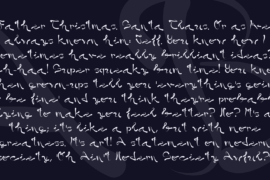 Father Christmas, Santa Claus. Or as
always known him: Jeff. You know how I
sometimes have really brilliant ideas
had! Super spooky time! You
when grown-ups tell you 'everything's going
be fine' and you think they're probably
lying to make you feel better? No? It's a
thing; it's like a plan, but with more
greatness. It's art! A statement on modern
society, 'Oh Ain't Modern Society Awful?'